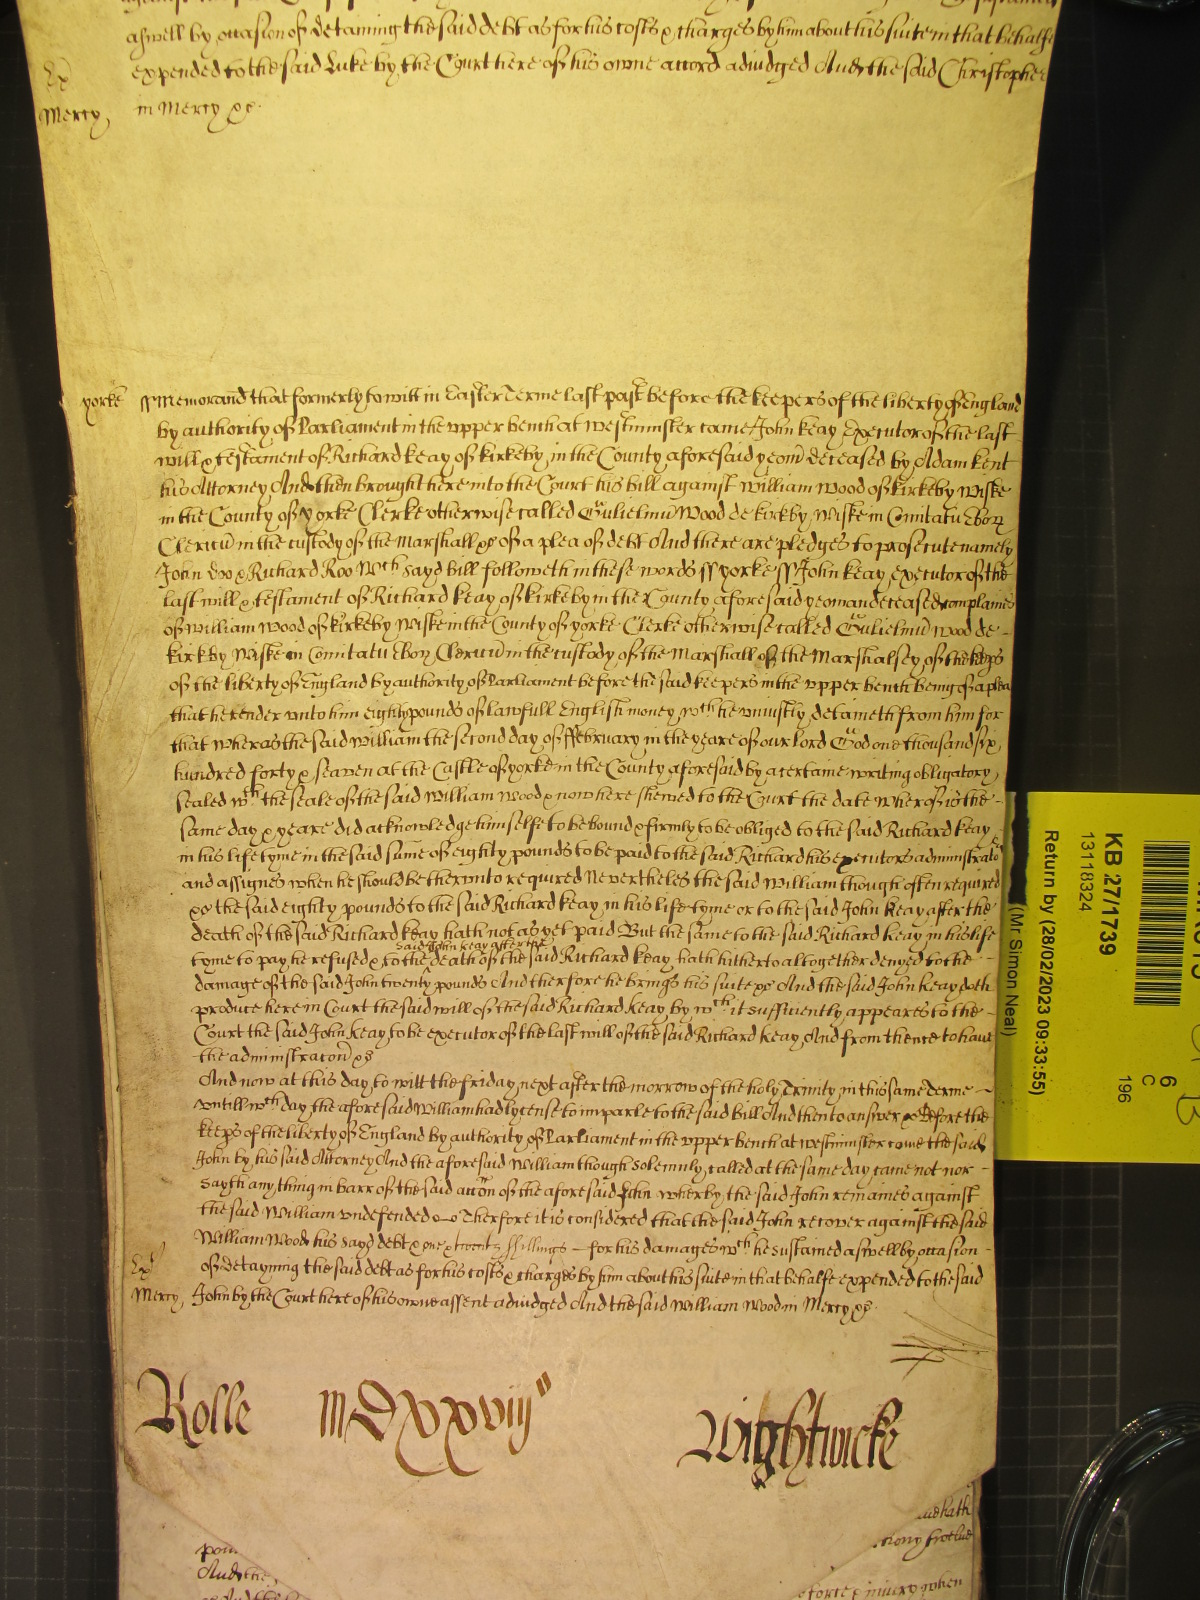 aswell by occasion of detaining the said debt as for his costs & charges by him about his suite in that behalfe
Ex expended to the said Luke by the Court here of his owne accord adiudged And the said Christopher
Mercy in Mercy &c.
yorke ss Memorand that formerly to witt in Easter Terme last past before the keepers of the liberty of England
by authority of Parliament in the vpper bench at Westminster came John Keay Executor of the last
will & testament of Richard Keay of Kirkeby in the County aforesaid yeom deceased by Adam Kent
his Attorney And then brought here into the Court his bill against William Wood of Kirkeby Wiske
in the County of Yorke Clerke otherwise called Gulielmu Wood de Kirkby Wiske in Comitatu Ebor
Clericu in the custody of the Marshall &c of a plea of debt And there are pledges to prosecute namely
John Doo & Richard Roo Wch sayd bill followeth in these words ss yorke ss John Keay executor of the
last will & testament of Richard Keay of Kirkeby in the County aforesaid yeoman deceased complaines
of William Wood of Kirkeby Wiske in the County of yorke Clerke otherwise called Gulielmu Wood de
Kirkby Wiske in Comitatu Ebor Clericu in the custody of the Marshall of the Marshalsey of the keeps
of the liberty of England by authority of Parliament before the said keepers in the vpper bench being of a plea
that he render vnto him eighty pounds of lawfull English money wch he vniustly detaineth from him for
that wheras the said William the second day of ffebruary in the yeare of our Lord God one thousand six
hundred forty & seaven at the Castle of yorke in the County aforesaid by a certaine writing obligatory
sealed wth the seale of the said William Wood & now here shewed to the Court the date wherof is the
same day & yeare did acknowledge himselfe to be bound & firmly to be obliged to the said Richard Keay
in his life tyme in the said sume of eighty pounds to be paid to the said Richard his executors administrato
and assignes when he should be thervnto required Nevertheles the said William though often required
&c the said eighty pounds to the said Richard Keay in his life tyme or to the said John Keay after the
death of the said Richard Keay hath not as yet paid But the same to the said Richard Keay in his life
said John Keay after the
tyme to pay he refused & to the death of the said Richard Keay hath hitherto altogether denyed to the
damage of the said John twenty pounds And therfore he brings his suite &c And the said John Keay doth
produce here in Court the said will of the said Richard Keay by wch it sufficiently appeares to the
Court the said John Keay to be executor of the last will of the said Richard Keay And from thence to haue
the administracon &c
And now at this day to witt the friday next after the morrow of the holy Trinity in this same Terme
vntill wch day the aforesaid William had lycense to imparle to the said bill And then to answer &c Before the
keeps of the liberty of England by authority of Parliament in the vpper bench at westminster came the said
John by his said Attorney And the aforesaid William though solemnly called at the same day came not nor
sayth any thing in barr of the said accon of the aforesaid John wherby the said John remaines against
the said William vndefended Therfore it is considered that the said John recover against the said
William Wood his sayd debt & one & twenty shillings for his damages wch he sustained aswell by occasion
Ex of detayning the said debt as for his costs & charges by him about his suite in that behalfe expended to the said
Mercy John by the Court here of his owne assent adiudged And the said William Wood in Mercy &c.
Rolle MDXXviij Wightwicke
KB 27/1739
13118324
Return by (28/02/2023 09:33:55)
(Mr Simon Neal)
196
6
C
B